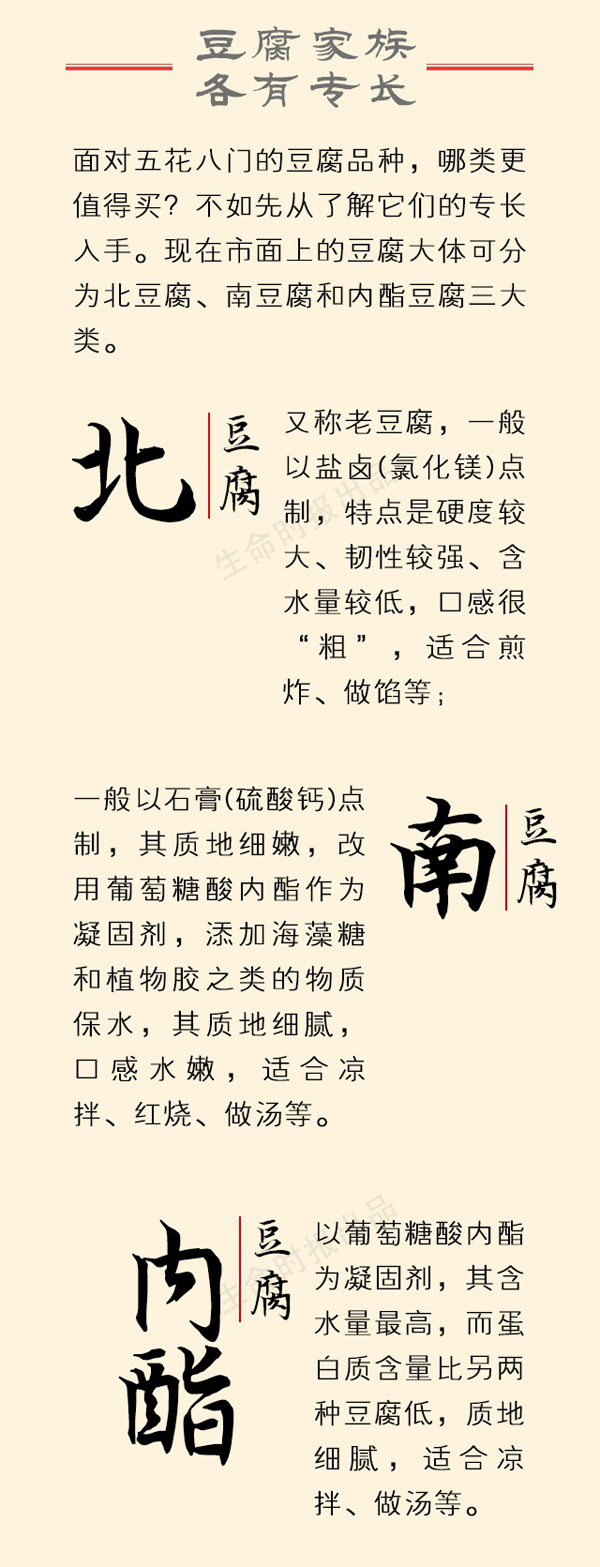 豆腐家族
各有专长
面对五花八门的豆腐品种，哪类更
值得买？不如先从了解它们的专长
入手。现在市面上的豆腐大体可分
为北豆腐、南豆腐和内酯豆腐三大
类。
北
豆腐
又称老豆腐，一般
以盐卤(氯化镁)点
制，特点是硬度较
大、韧性较强、含
水量较低，口感很
“粗”，适合煎
炸、做馅等；
生命时报出品
南
豆腐
一般以石膏(硫酸钙)点
制，其质地细嫩，改
用葡萄糖酸内酯作为
凝固剂，添加海藻糖
和植物胶之类的物质
保水，其质地细腻，
口感水嫩，适合凉
拌、红烧、做汤等。
内酯
豆腐
以葡萄糖酸内酯
为凝固剂，其含
水量最高，而蛋
白质含量比另两
种豆腐低，质地
细腻，适合凉
拌、做汤等。
生命时报出品